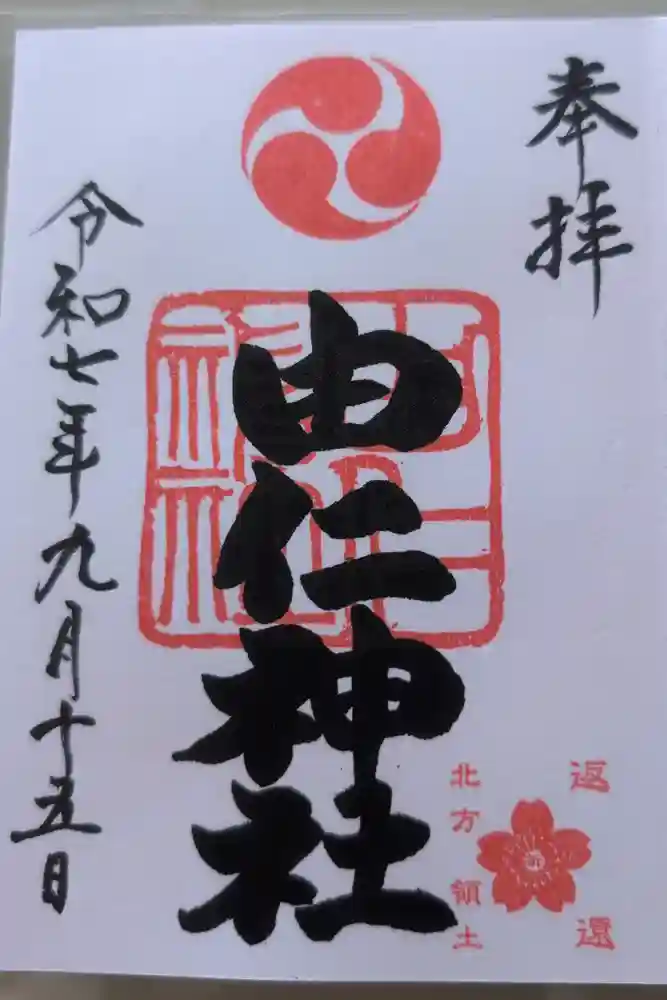 奉拝
由仁神社
令和七年九月十五日
北方領土
返還
祈